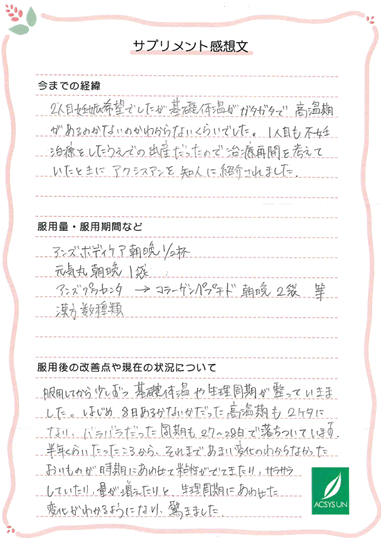 サプリメント感想文
今までの経緯
2人目妊娠希望でしたが基礎体温がガタガタで高温期
があるのかないのかわからないくらいでした。1人目も不妊
治療をしたうえでの出産だったので治療再開を考えて
いたときにアクシスアンを知人に紹介されました。
服用量・服用期間など
アンズボディケア朝晩1/2杯
元気丸朝晩1袋
アンズプラセンタ → コラーゲンペプチド朝晩2袋 等
漢方数種類
服用後の改善点や現在の状況について
服用してから少しずつ基礎体温や生理周期が整っていきま
した。はじめ、8日あるかないかだった高温期も2ケタに
なり、バラバラだった周期も27〜28日で落ちついています。
半年くらいたったころから、それまであまり変化のわからなかった
おりものが時期にあわせて粘性がでてきたり、サラサラ
していたり、量が増えたりと、生理周期にあわせた
変化がわかるようになり、驚きました。
ACSYS UN